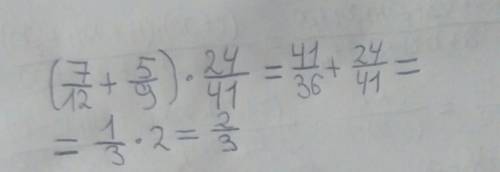 (7/12 + 5/9) · 24/41 = 41/36 + 24/41 =
= 1/3 · 2 = 2/3